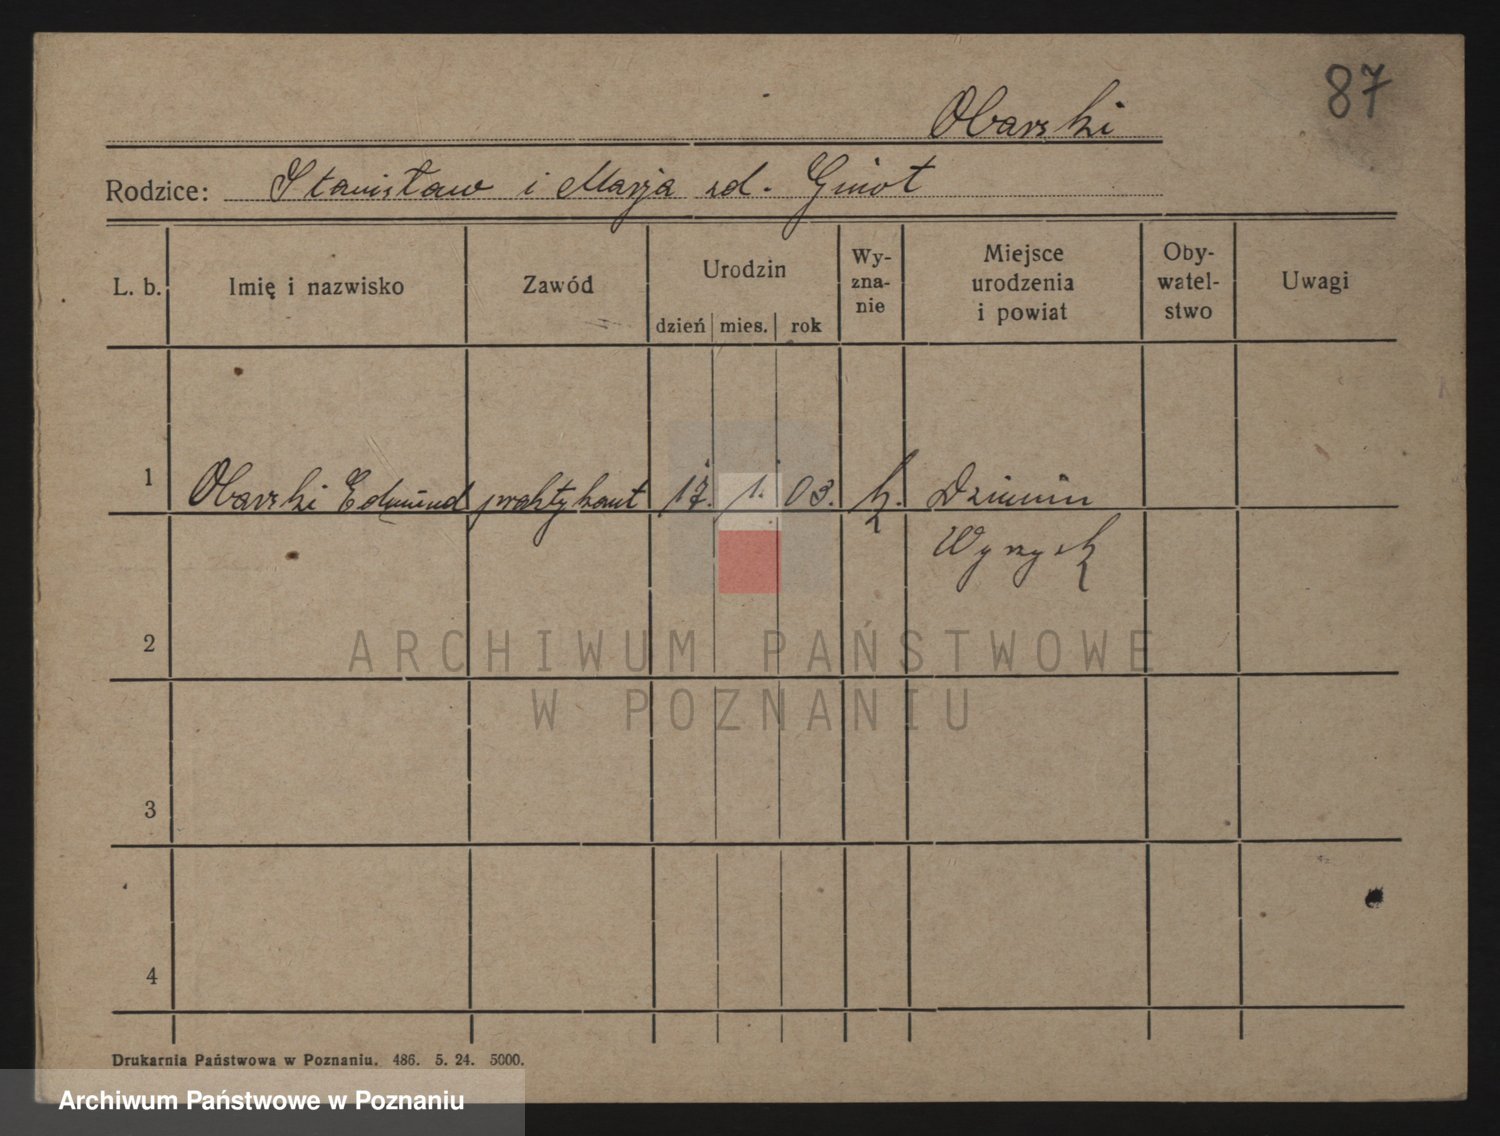 87
Obarski
Rodzice: Stanisław i Marja zd. Gniot
L. b.
Imię i nazwisko
Zawód
Urodzin
dzień mies. rok
Wy-
zna-
nie
Miejsce
urodzenia
i powiat
Oby-
watel-
stwo
Uwagi
1 Obarski Edmund praktykant 17. 1. 03. k.
Wyrzysk
2
3
4
ARCHIWUM PAŃSTWOWE
W POZNANIU
Drukarnia Państwowa w Poznaniu. 486. 5. 24. 5000.
Archiwum Państwowe w Poznaniu